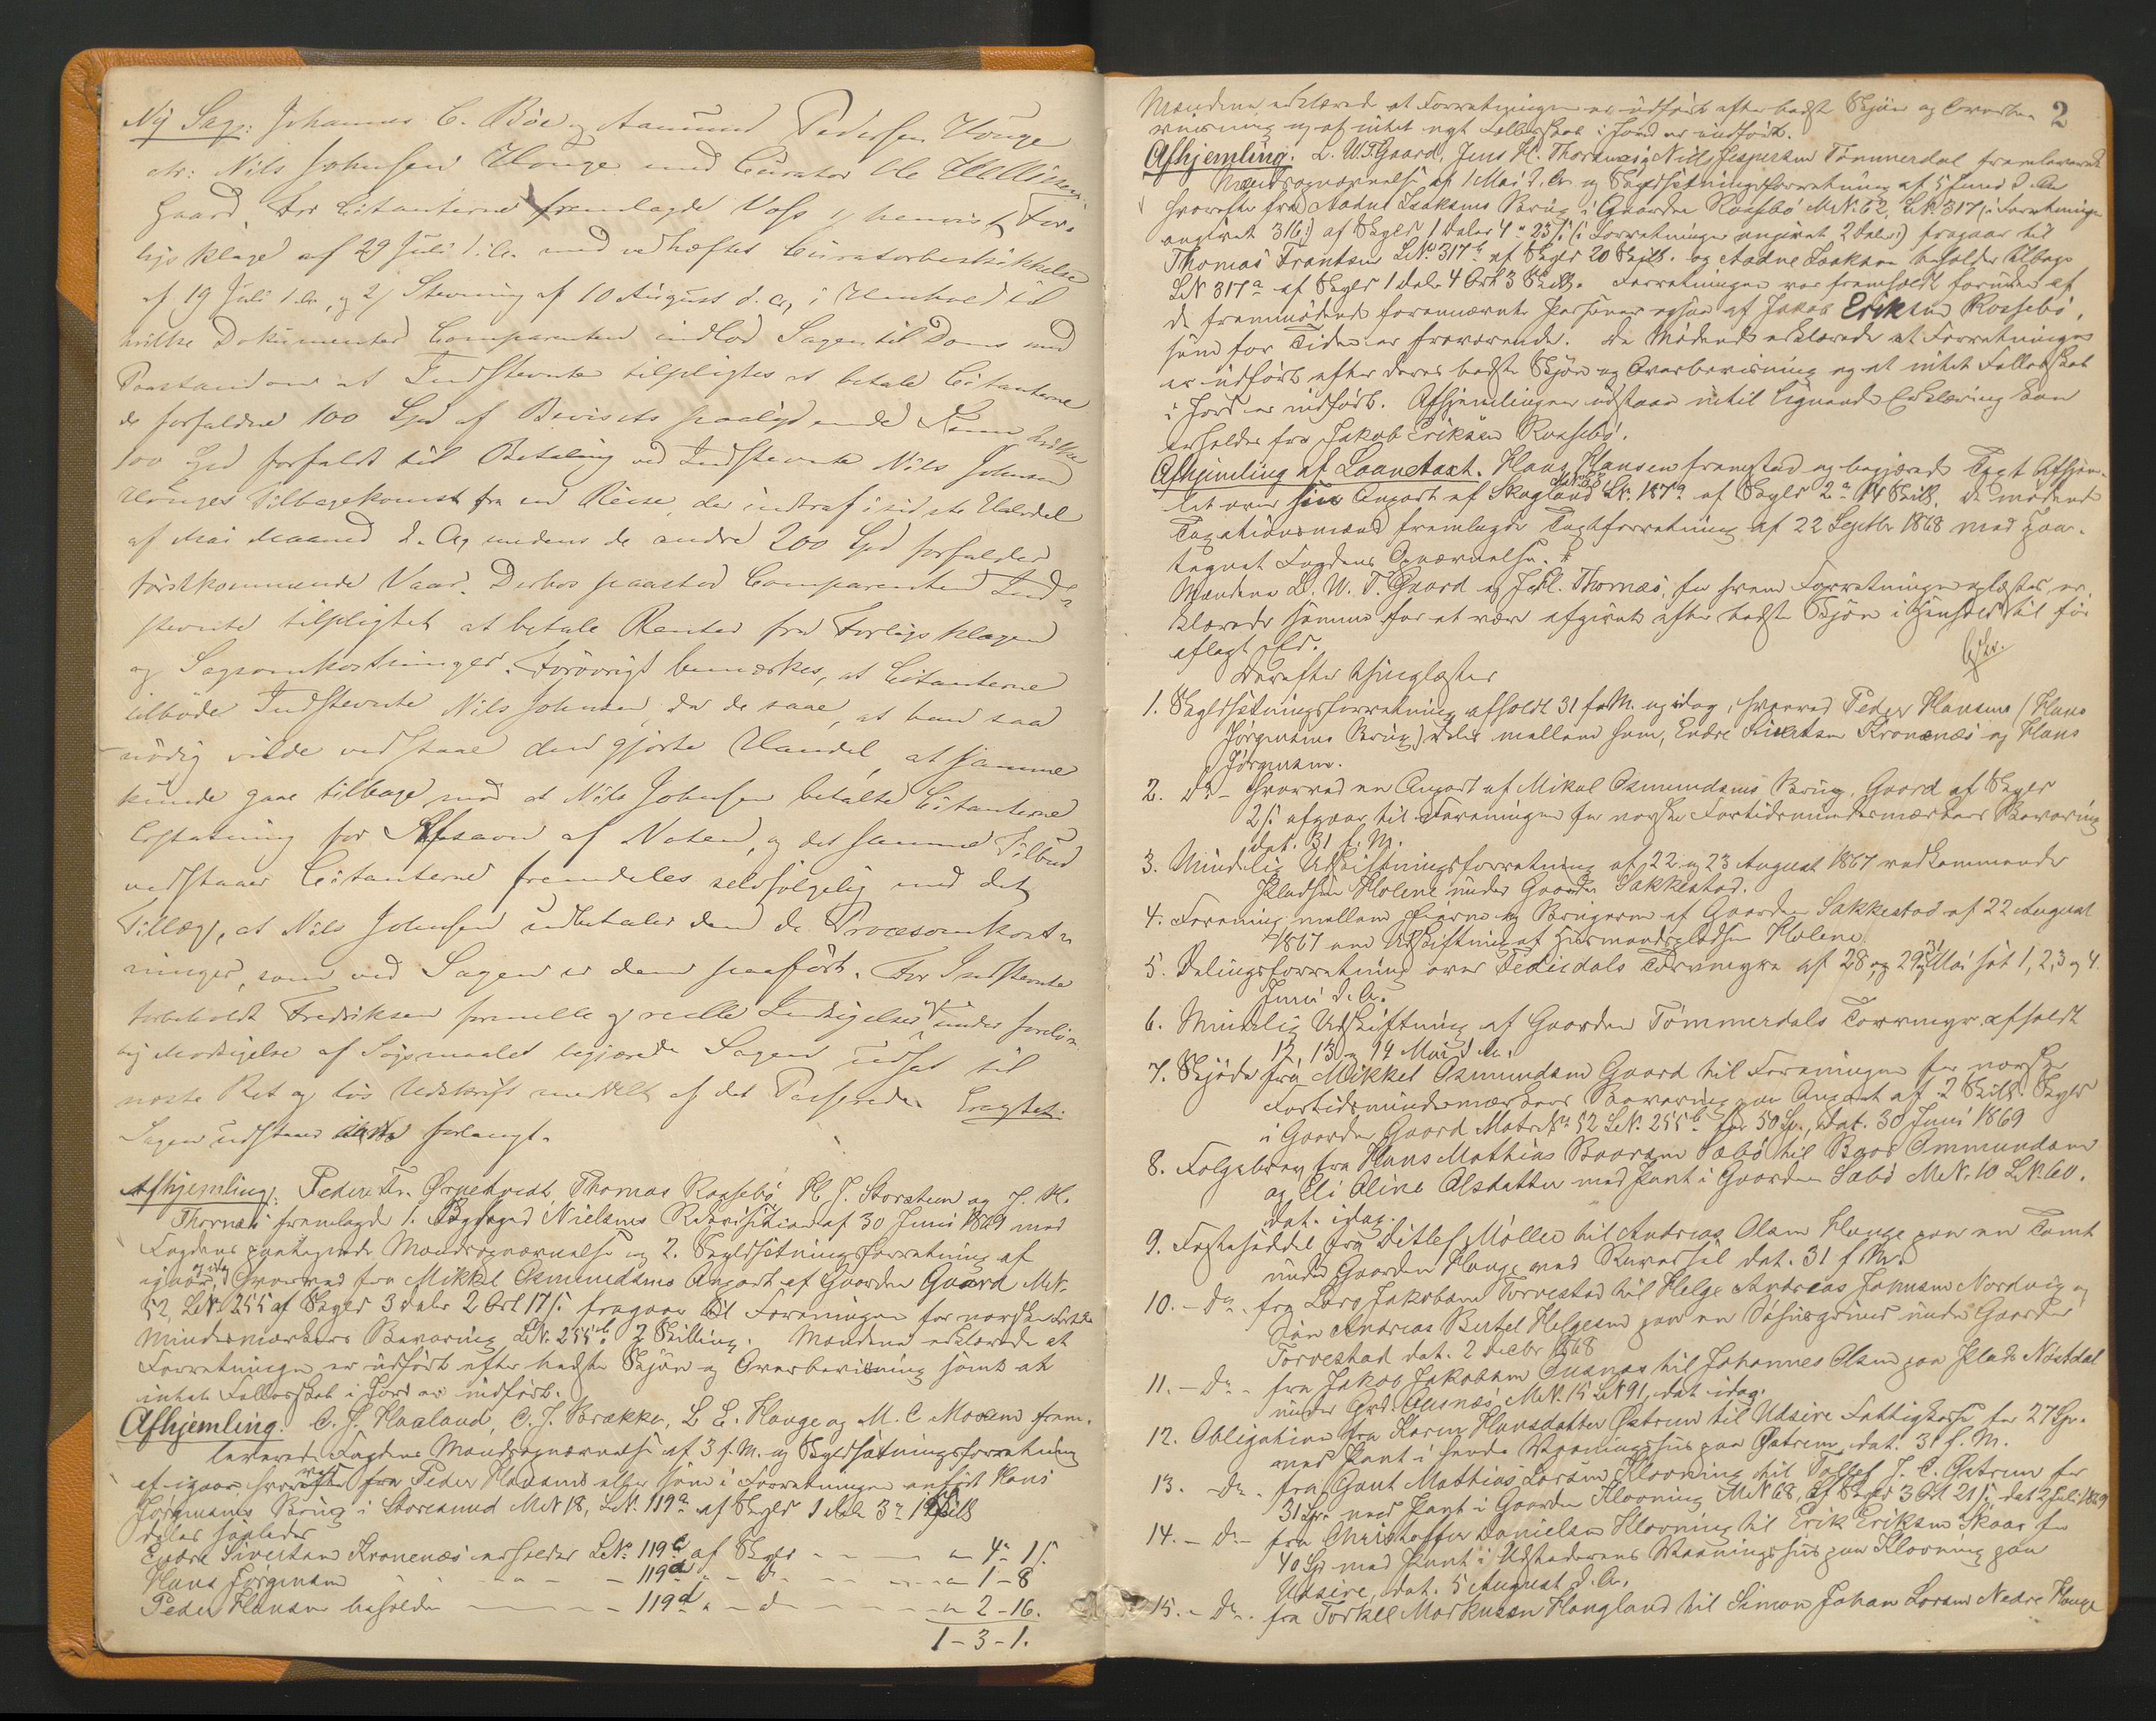 Ny Sag: Johannes C. Böe og Aamund Pedersen Houge
ctr: Nils Johnsen Houge med Curator Ole
Gaard. For Citanterne fremlagde Voss 1, henvist For-
ligsklage af 29 Juli d. A. med vedhæftet Curatorbeskikkelse
af 19 Juli d. A., og 2, Stevning af 10 August d. A., i Henhold til
hvilke Dokumenter Comparenten indlod Sagen til Doms med
Paastand om at Indstevnte tilpligtes at betale Citanterne
de forfaldne 100 Spd af Bevisets paalydende Sum, hvilke
100 Spd forfaldt til Betaling ved Indstevnte Nils Johnsen
Houges Tilbagekomst fra en Reise, der indtraf i sidste Halvdel
af Mai Maaned d. A., medens de andre 200 Spd forfalder
förstkommende Vaar. Derhos paastod Comparenten Ind-
stevnte tilpligtet at betale Renter fra Forligsklagen
og Sagsomkostninger. Forövrigt bemærkes, at Citanterne
tilböde Indstevnte Nils Johnsen, da de saae, at han saa
nödig vilde vedstaae den gjorte Handel, at samme
kunde gaae tilbage mod at Nils Johnsen betalte Citanterne
Erstatning for Afsavn af Noten, og det samme Tilbud
vedstaaer Citanterne fremdeles selvfölgelig med det
Tillæg, at Nils Johnsen udbetaler dem de Procesomkost-
ninger, som ved Sagen er dem paafört. For Indstevnte
forbeholdt Fredriksen formelle og reelle Indsigelser og under forelö-
big Modsigelse af Sögsmaalet begjærede Sagen udsat til
næste Ret og lös Udskrift meddelt af det Passerede. Eragtet:
Sagen udstaaer forlangt.
Afhjemling: Peder Fr. Ørnehvedt, Thomas Raasebö, K. J. Storsteen og J. H.
Thornæs fremlagde 1. Nielsens Rekvisition af 30 Juni 1869 med
Fogdens paategnede Mandsopnævnelse og 2. Skyldsætningsforretning af
igaar og idag, hvorved fra Mikkel Osmundsens Anpart af Gaarden Gaard MN.
52, LN. 255 af Skyld 3 Daler 2 Ort 17 s. fragaar til Foreningen for norske Fortids
Mindesmærkers Bevaring LN. 255 b, 2 Skilling. Mændene erklærede at
Forretningen er udfört efter bedste Skjön og Overbevisning samt at
intet Fællesskab i Jord er indfört.
Afhjemling. C. J. Haaland, C. J. Brække, L. E. Hauge og M. C. Mosem frem-
leverede Fogdens Mandsopnævnelse af 3 f. M. og Skyldsætningsforretning
af igaar hvorved fra Peder Hansens eller som i Forretningen anfört Hans
Jörgensens Brug i Storesund MN 18, LN. 119 a af Skyld 1 Daler 3 " 1 Skill
deles saaledes
Endre Sivertsen Kronenæs erholder LN. 119 c af Skyld - - - - " 4 " 1 s.
Hans Jörgensen " - - " - 119 d " - d - - - - " 1 - 8
Peder Hansen beholder - - - 119 a " - d - - - - " 2 - 16.
1 - 3 - 1.
2
Mændene erklærede at Forretningen er udfört efter bedste Skjön og Overbe-
viisning og at intet nyt Fællesskab i Jord er indfört.
Afhjemling. L. W. T. Gaard, Jens Kl. Thornæs og Nils Jespersen Tömmerdal fremleverede
Mandsopnævnelse af 1 Mai d. A. og Skyldsætningsforretning af 5 Juni d. A.
hvorefter fra Aadne Isaksens Brug i Gaarden Raasebö MN. 62, LN. 317 (i Forretningen
angivet 316) af Skyld 1 Daler 4 " 23 s. (i Forretningen angivet 2 Daler) fragaar til
Thomas Frantsen LN. 317 b af Skyld 20 Skill. og Aadne Isaksen beholder tilbage
LN 317 a af Skyld 1 Daler 4 Ort 3 Skill. Forretningen var fremholdt foruden af
de fremmödende forannævnte Personer ogsaa af Jakob Eriksen Rossebö,
som for Tiden er fraværende. De Mödende erklærede at Forretningen
er udfört efter deres bedste Skjön og Overbevisning og at intet Fællesskab
i Jord er indfört. Afhjemlingen udstaar indtil lignende Erklæring kan
erholdes fra Jakob Eriksen Raasebö.
Afhjemling af Laanetaxt. Hans Hansen fremstod og begjærede Taxt Afhjem-
let over sin Anpart af Skogland LN. 187 a af Skyld 2 " 14 Skill. De mödende
Taxationsmænd fremlagde Taxtforretning af 22 Septbr 1868 med paa-
tegnet Fogdens Opnævnelse.
Mændene L. W. T. Gaard og J. Kl. Thornæs, for hvem Forretningen oplæstes, er-
klærede samme for at være afgivet efter bedste Skjön i Henhold til för
aflagt Ed.
Derefter thinglæstes
1. Skyldsætningsforretning afholdt 31 f. M. og idag, hvorved Peder Hansens (Hans
Jörgensens Brug) deles mellem ham, Endre Sivertsen Kronenæs og Hans
Jörgensen.
2. Do - hvorved en Anpart af Mikal Osmundsens Brug, Gaard af Skyld
2 s. afgaar til Foreningen for norske Fortidsmindesmærkers Bevaring
dat. 31 f. M.
3. Mindelig Udskiftningsforretning af 22 og 23 August 1867 vedkommende
Pladsen Holene under Gaarden Sakkestad.
4. Forening mellem Eierne og Brugerne af Gaarden Sakkestad af 22 August
1867 om Udskiftning af Huusmandspladsen Holene
5. Delingsforretning over Fedicdals Torvmyre af 28 og 29 og 31 Mai samt 1, 2, 3 og 4
Juni d. A.
6. Mindelig Udskiftning af Gaarden Tömmerdals Torvmyr, afholdt
12, 13 og 14 Mai d. A.
7. Skjöde fra Mikkel Osmundsen Gaard til Foreningen for norske
Fortidsmindesmærkers Bevaring paa Anpart af 2 Skill. Skyld
i Gaarden Gaard Matr. N. 52 LN. 255 b for 50 Sp., dat. 30 Juni 1869
8. Folgebrev fra Hans Mathias Baarsen Sæbö til Baar Ommundsen
og Eli Oline Olsdatter med Pant i Gaarden Sæbö MN. 10 LN. 60.
dat. idag.
9. Fæstesöddel fra Ditlef Möller til Andreas Olsen Hauge paa en Tomt
under Gaarden Hauge med Reversal dat. 31 f. M.
10. - Do - fra Lars Jakobsen Torvestad til Helge Andreas Johnsen Nordvig og
Sön Andreas Bertel Helgesen paa en Söhusgrund under Gaarden
Torvestad dat. 2 Decbr 1868
11. - Do - fra Jakob Jakobsen Ousnæs til Johannes Olsen paa Plads Nöstdal
under Grd. Ousnæs, MN. 15 LN 91, dat. idag.
12. Obligation fra Karen Hansdatter Østrem til Udsire Fattigkasse for 27 Sp.
med Pant i hendes Vaaningshus paa Østrem, dat. 31 f. M.
13. - Do - fra Gaut Mathias Larsen Klovning til Tollef J. C. Østrem for
31 Sp. med Pant i Gaarden Klovning MN 68, af Skyld 3 Ort 21 s., dat. 2 Juli 1869
14. - Do - fra Christoffer Danielsen Klovning til Erik Eriksen Skaar for
40 Sp. med Pant i Udstederens Vaaningshus paa Klovning paa
Udsire, dat. 5 August d. A.
15. - Do - fra Torkel Markusen Haugland til Simon Johan Larsen Nedre Hauge